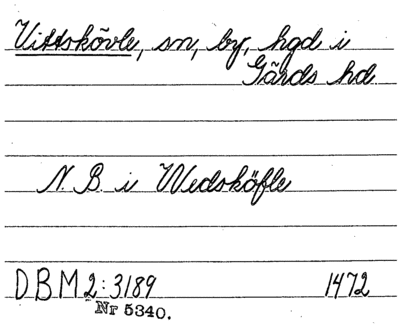 Vittskövle, sn, by, hgd i
Gärds hd
N. B. i Wedsköfle
DBM 2:3189 1472
Nr 5340.